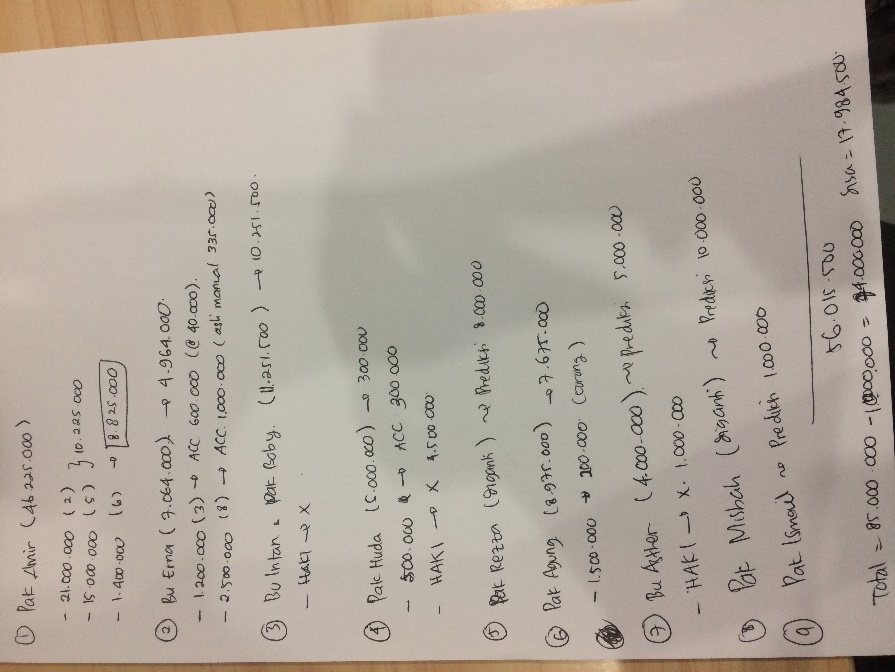 ① Pak Amir (46.225.000)
- 21.000.000 (2)
- 15.000.000 (5) } 10.225.000
- 1.400.000 (6) → 8.825.000
② Bu Erna (7.064.000) → 4.964.000.
- 1.200.000 (3) → ACC 600.000 (@ 40.000).
- 2.500.000 (8) → ACC 1.000.000 (asli manual 335.000)
③ Bu Intan & Pak Boby. (11.251.500) → 10.251.500.
- HAKI → X
④ Pak Huda (5.000.000) → 300.000
- 500.000 → ACC 300.000
- HAKI → X 4.500.000.
⑤ Pak Rezza (diganti) ~ Prediksi 8.000.000
⑥ Pak Agung (8.975.000) → 7.675.000
- 1.500.000 → 200.000 (curang)
⑦ Bu Asther (4.000.000). ~ Prediksi 5.000.000
- HAKI → X. 1.000.000
⑧ Pak Misbah (diganti) ~ Prediksi 10.000.000
⑨ Pak Ismail ~ Prediksi 1.000.000
56.015.500
Total = 85.000.000 - = Sisa = 17.984.500.